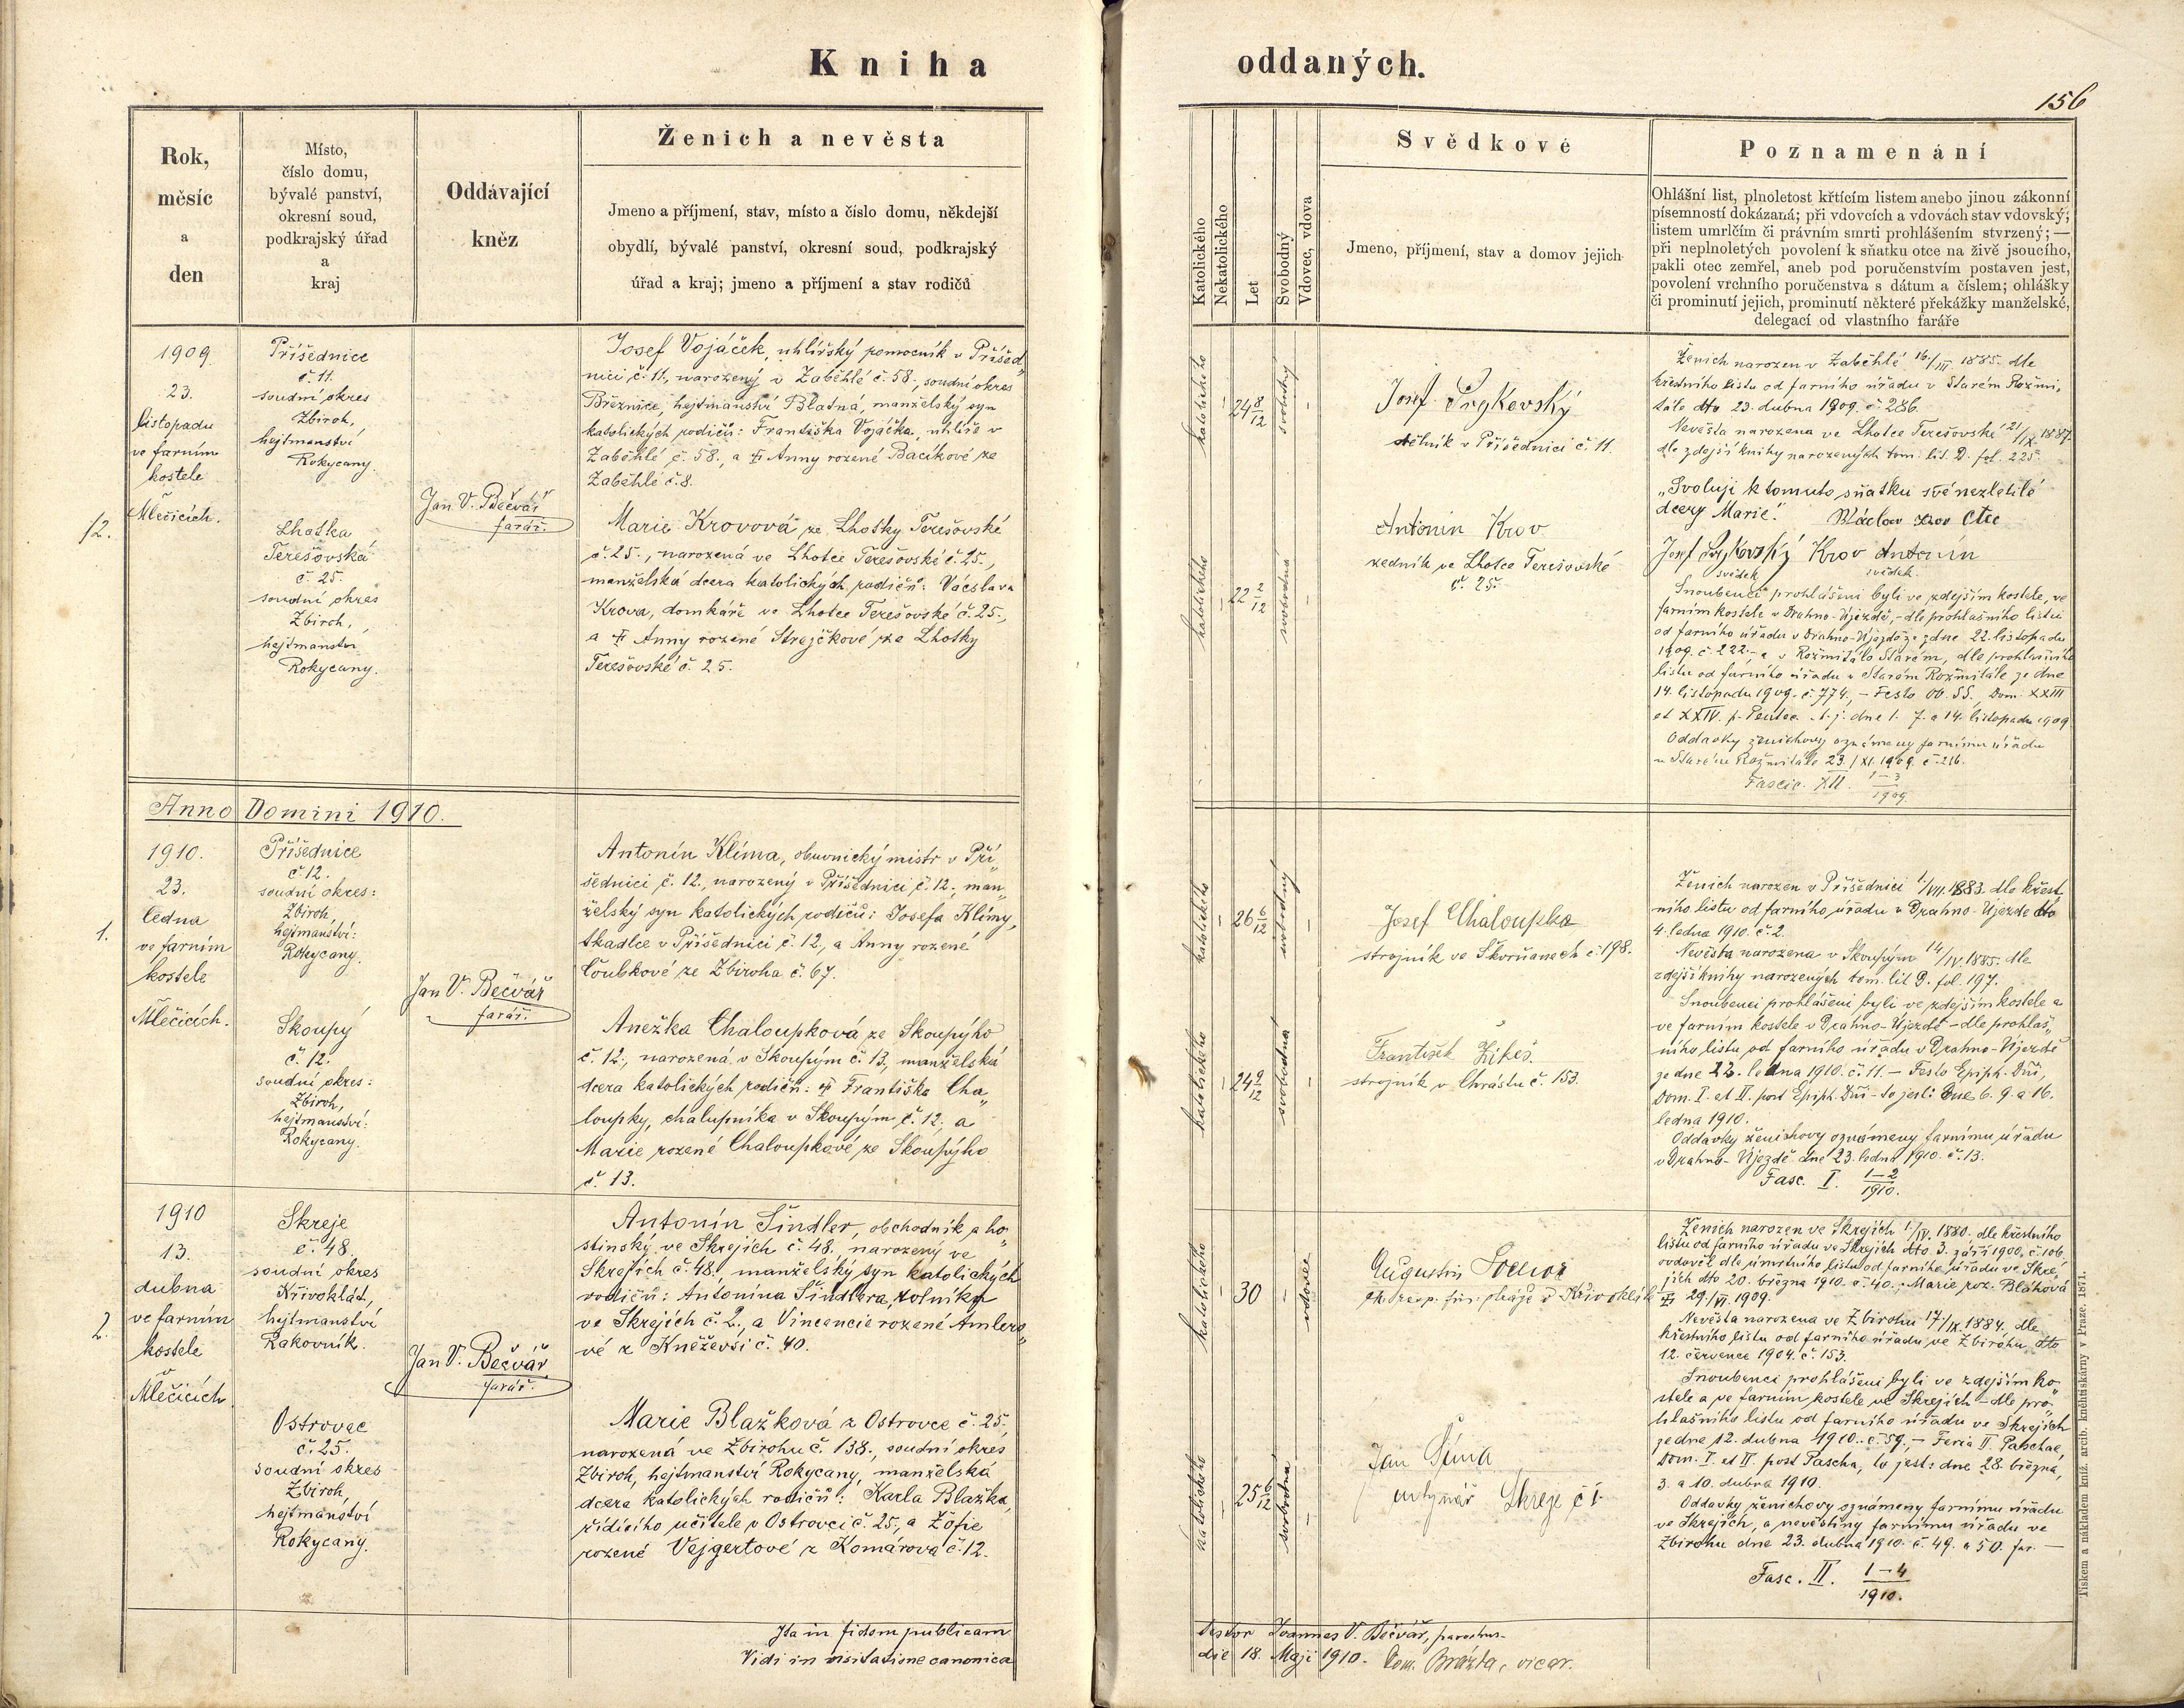 Kniha
oddaných.
156
Rok,
měsíc
a
den
Místo,
číslo domu,
bývalé panství,
okresní soud,
podkrajský úřad
a
kraj
Oddávající
kněz
Ženich a nevěsta
Jmeno a příjmení, stav, místo a číslo domu, někdejší
obydlí, bývalé panství, okresní soud, podkrajský
úřad a kraj; jmeno a příjmení a stav rodičů
Katolického
Nekatolického
Let
Svobodný
Vdovec, vdova
Svědkové
Jmeno, příjmení, stav a domov jejich
Poznamenání
Ohlášní list, plnoletost křtícím listem anebo jinou zákonní
písemností dokázaná; při vdovcích a vdovách stav vdovský;
listem umrlčím či právním smrti prohlášením stvrzený; —
při neplnoletých povolení k sňatku otce na živě jsoucího,
pakli otec zemřel, aneb pod poručenstvím postaven jest,
povolení vrchního poručenstva s dátum a číslem; ohlášky
či prominutí jejich, prominutí některé překážky manželské,
delegací od vlastního faráře
12.
1909
23.
listopadu
ve farním
kostele
v
Mlečicích.
Příšednice
č. 11.
soudní okres
Zbiroh,
hejtmanství
Rokycany.
Lhotka
Terešovská
č. 25.
soudní okres
Zbiroh,
hejtmanství
Rokycany.
Jan V. Bečvář
farář.
Josef Vojáček, uhlířský pomocník v Příšed„
nici č. 11, narozený v Zaběhlé č. 58., soudní okres
Březnice, hejtmanství Blatná, manželský syn
katolických rodičů: Františka Vojáčka, uhlíře v
Zaběhlé č. 58., a † Anny rozené Bacíkové ze
Zaběhlé č. 8.
Marie Krovová ze Lhotky Terešovské
č. 25., narozená ve Lhotce Terešovské č. 25.,
manželská dcera katolických rodičů: Václava
Krova, domkáře ve Lhotce Terešovské č. 25.,
a † Anny rozené Strejčkové ze Lhotky
Terešovské č. 25.
katolického
24 8/12
svobodný
katolického
22 2/12
svobodná
Josef
dělník v Příšednici č. 11.
Antonín Krov
zedník ve Lhotce Terešovské
č. 25.
Ženich narozen v Zaběhlé 16./III 1885. dle
křestního listu od farního úřadu v Starém Rožmi„
tále dto 23. dubna 1909. č. 286.
Nevěsta narozena ve Lhotce Terešovské 21/IX. 1887.
dle zdejší knihy narozených tom. lit. D. fol. 225.
„Svoluji k tomuto sňatku své nezletilé
dcery Marie.“ Václav Krov Otec
Josef Krov Antonín
svědek svědek.
Snoubenci prohlášeni byli ve zdejším kostele, ve
farním kostele v Drahno-Újezdě, - dle prohlašního listu
od farního úřadu v Drahno-Újezdě ze dne 22. listopadu
1909. č. 222. - a v Rožmitále Starém, dle prohlašního
listu od farního úřadu v Starém Rožmitále ze dne
14. listopadu 1909. č. 774, - Festo OO. SS., Dom. XXIII
et XXIV. p. Pentec. t. j. dne 1. 7. a 14. listopadu 1909
Oddavky ženichovy oznámeny farnímu úřadu
v Starém Rožmitále 23./XI. 1909. č. 216.
Fascic. XII. 1-3/1909
Anno Domini 1910.
1.
1910.
23.
ledna
ve farním
kostele
v
Mlečicích.
Příšednice
č. 12.
soudní okres:
Zbiroh,
hejtmanství:
Rokycany.
Skoupý
č. 12.
soudní okres:
Zbiroh,
hejtmanství:
Rokycany.
Jan V. Bečvář
farář.
Antonín Klíma, obuvnický mistr v Pří„
šednici č. 12., narozený v Příšednici č. 12., man„
želský syn katolických rodičů: Josefa Klímy,
tkadlce v Příšednici č. 12, a Anny rozené
Čoubkové ze Zbiroha č. 67.
Anežka Chaloupková ze Skoupýho
č. 12., narozená v Skoupým č. 13., manželská
dcera katolických rodičů: † Františka Cha„
loupky, chalupníka v Skoupým č. 12., a
Marie rozené Chaloupkové ze Skoupýho
č. 13.
katolického
26 6/12
svobodný
katolického
24 9/12
svobodná
Josef Chaloupka
strojník ve Škvrňanech č. 198.
František Zikeš
strojník v Chrástu č. 153.
Ženich narozen v Příšednici 1./VII. 1883. dle křest
ního listu od farního úřadu v Drahno-Újezdě dto
4. ledna 1910. č. 2.
Nevěsta narozena v Skoupým 14/IV. 1885. dle
zdejší knihy narozených tom. lit D. fol. 197.
Snoubenci prohlášeni byli ve zdejším kostele a
ve farním kostele v Drahno-Újezdě - dle prohlaš„
ního listu od farního úřadu v Drahno-Újezdě
ze dne 22. ledna 1910. č. 11. - Festo Epiph. Dñi,
Dom. I. et II. post Epiph. Dñi - to jest: dne 6. 9. a 16.
ledna 1910.
Oddavky ženichovy oznámeny farnímu úřadu
v Drahno-Újezdě dne 23. ledna 1910. č. 13.
Fasc. I. 1-2/1910.
2.
1910
13.
dubna
ve farním
kostele
v
Mlečicích
Skreje
č. 48.
soudní okres
Křivoklát,
hejtmanství
Rakovník.
Ostrovec
č. 25.
soudní okres
Zbiroh,
hejtmanství
Rokycany.
Jan V. Bečvář
farář.
Antonín Šindler, obchodník a ho„
stinský ve Skrejích č. 48., narozený ve
Skrejích č. 48., manželský syn katolických
rodičů: Antonína Šindlera, rolníka
ve Skrejích č. 2., a Vincencie rozené Amlero„
vé z Kněževsi č. 40.
Marie Blažková z Ostrovce č. 25.,
narozená ve Zbirohu č. 138., soudní okres
Zbiroh, hejtmanství Rokycany, manželská
dcera katolických rodičů: Karla Blažka,
řídícího učitele v Ostrovci č. 25., a Žofie
rozené Vejgertové z Komárova č. 12.
katolického
30
vdovec
katolického
25 6/12
svobodná
Augustin
Křivoklátě
Jan Šíma
mlynář Skreje č 1.
Ženich narozen ve Skrejích 1./IV. 1880. dle křestního
listu od farního úřadu ve Skrejích dto 3. září 1900. č. 106
ovdověl dle úmrtního listu od farního úřadu ve Skre„
jích dto 20. března 1910. č. 40. Marie roz. Bláhová
† 29./VI. 1909.
Nevěsta narozena ve Zbirohu 17./IX. 1884. dle
křestního listu od farního úřadu ve Zbirohu dto
12. července 1904. č. 153.
Snoubenci prohlášeni byli ve zdejším ko„
stele a ve farním kostele ve Skrejích - dle pro„
hlašního listu od farního úřadu ve Skrejích
ze dne 12. dubna 1910. č. 59., - Feria II. Paschae,
Dom. I. et II. post Pascha, to jest: dne 28. března,
3. a 10. dubna 1910.
Oddavky ženichovy oznámeny farnímu úřadu
ve Skrejích, a nevěstiny farnímu úřadu ve
Zbirohu dne 23. dubna 1910. č. 49. a 50. far. —
Fasc. II. 1-4/1910.
Ita in fidem publicam
testor Joannes V. Bečvář, parochus.
Vidi in visitatione canonica
die 18. Maji 1910. Dom. vicar.
Tiskem a nákladem kníž. arcib. knihtiskárny v Praze. 1871.